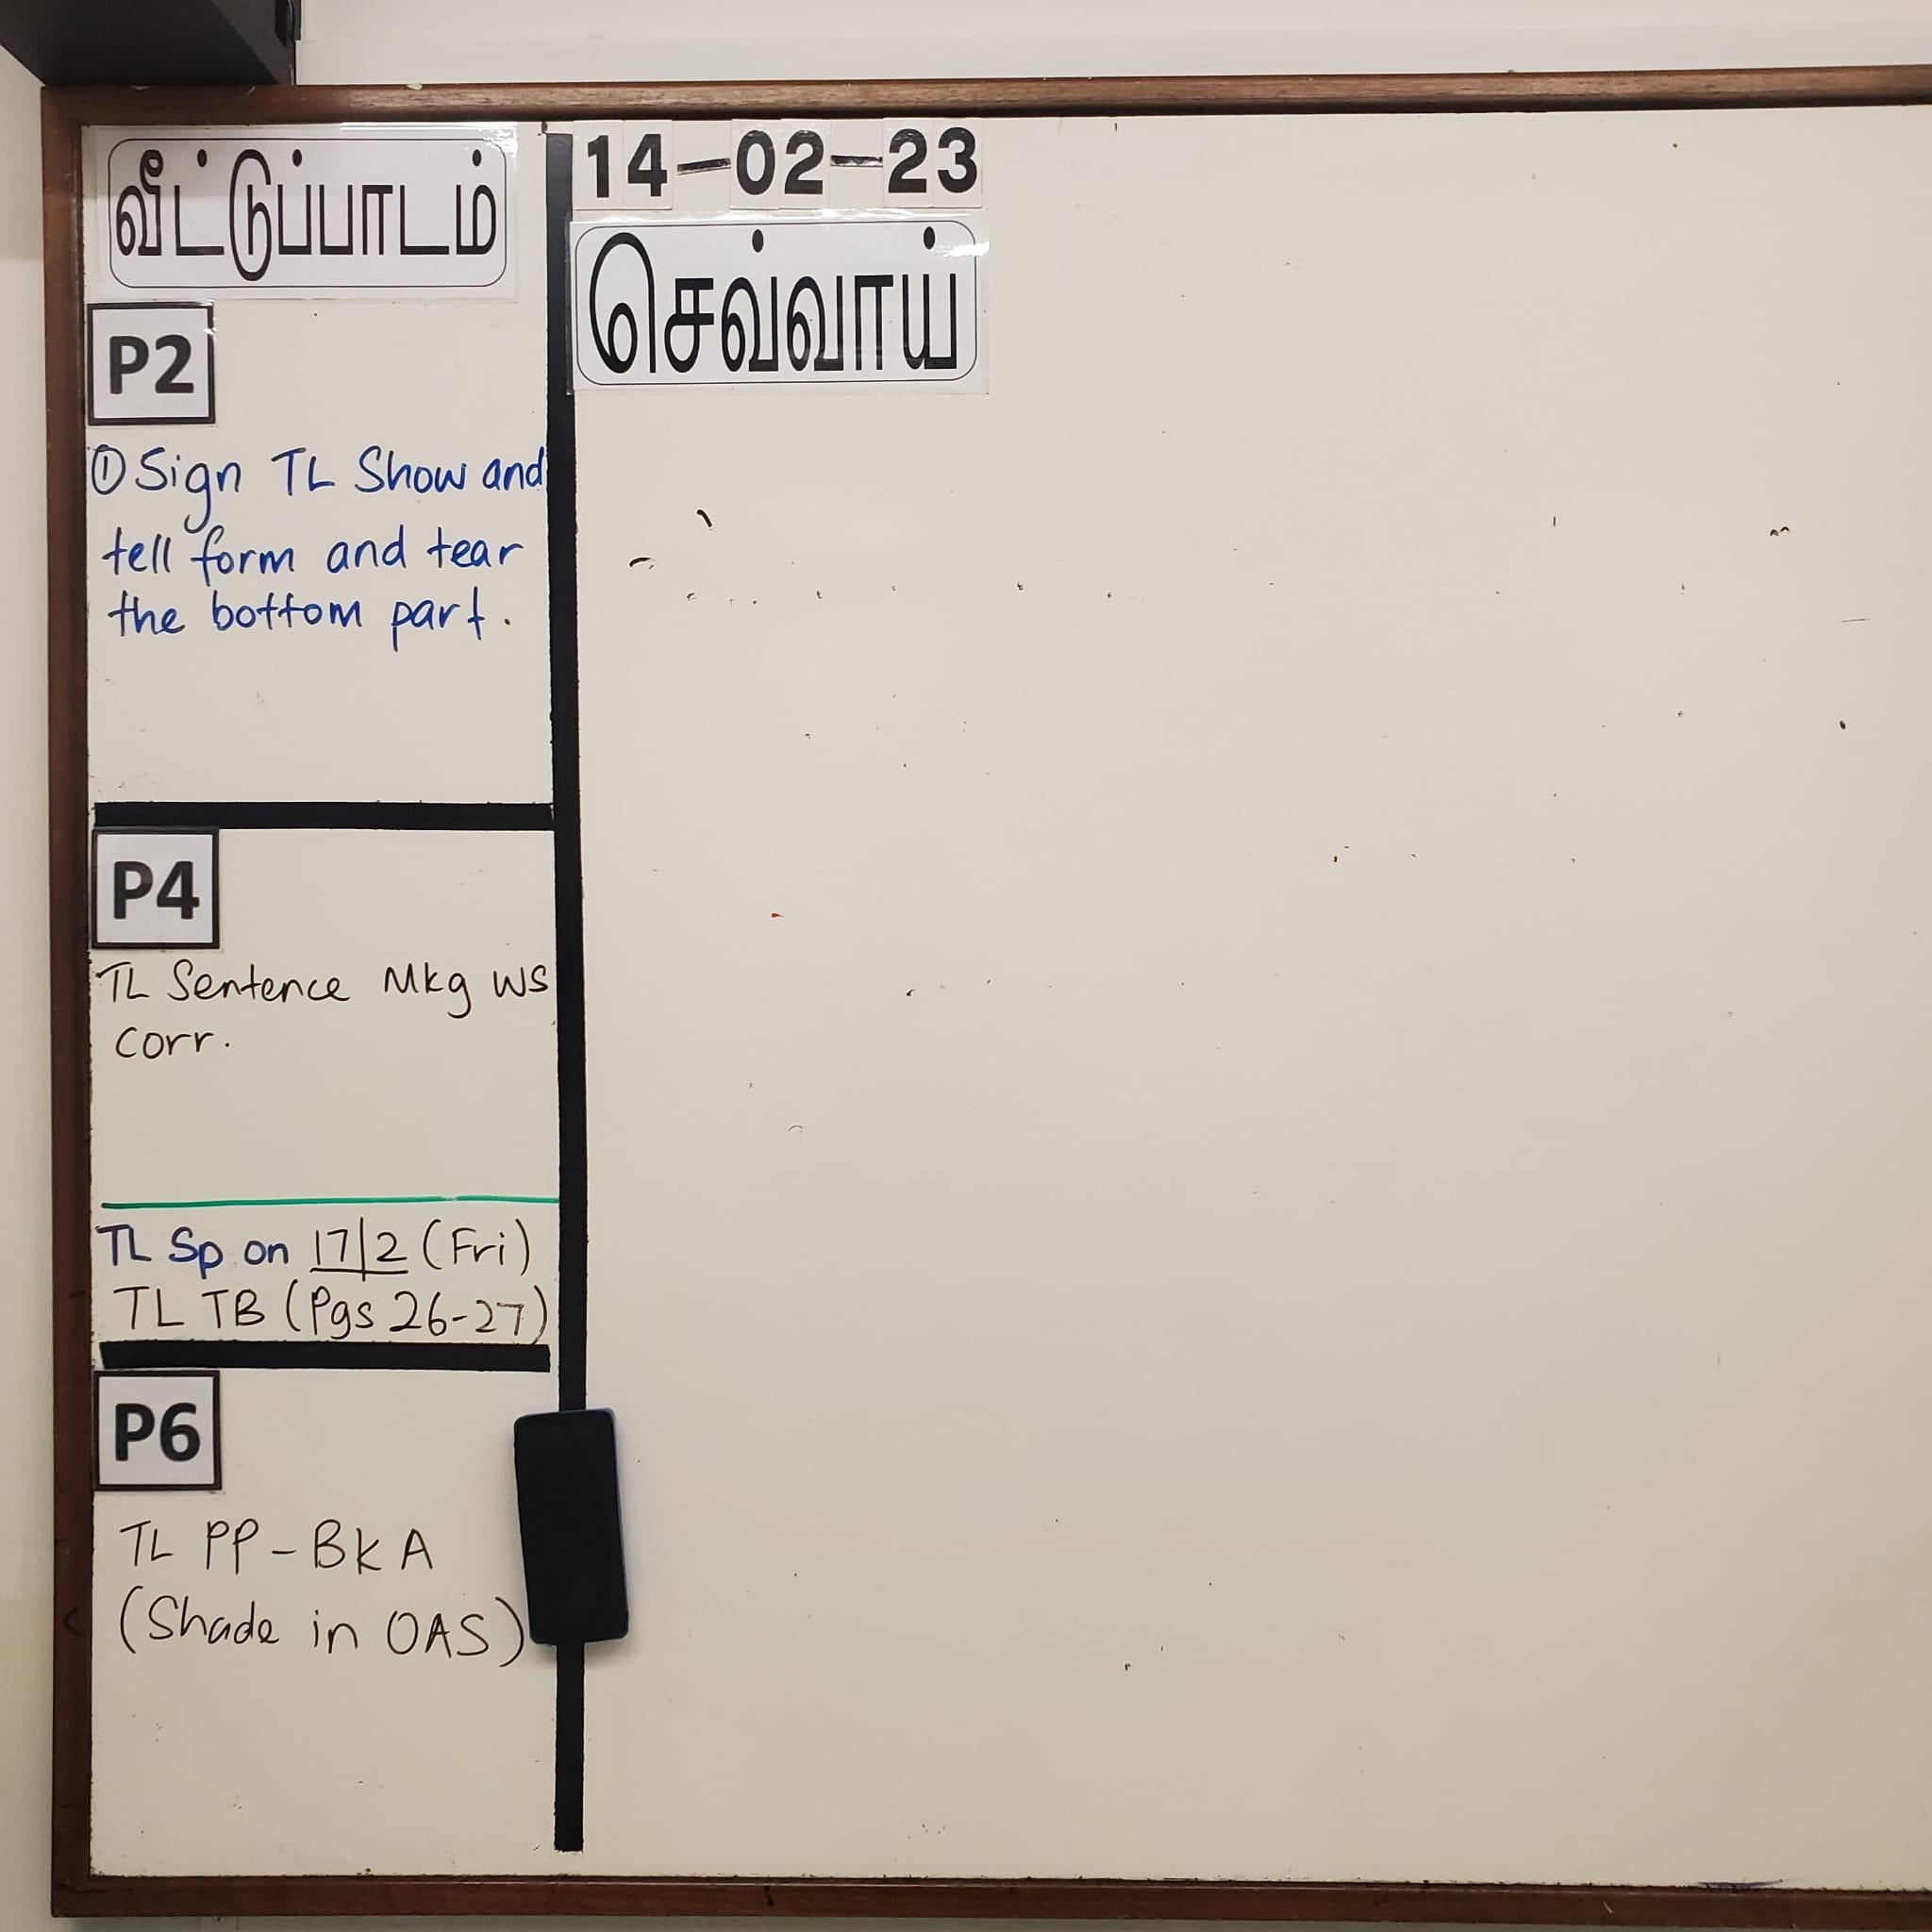 வீட்டுப்பாடம்
14-02-23
செவ்வாய்
P2
① Sign TL Show and
tell form and tear
the bottom part.
P4
TL Sentence Mkg WS
Corr.
TL Sp on 17/2 (Fri)
TL TB (Pgs 26-27)
P6
TL PP - Bk A
(Shade in OAS)